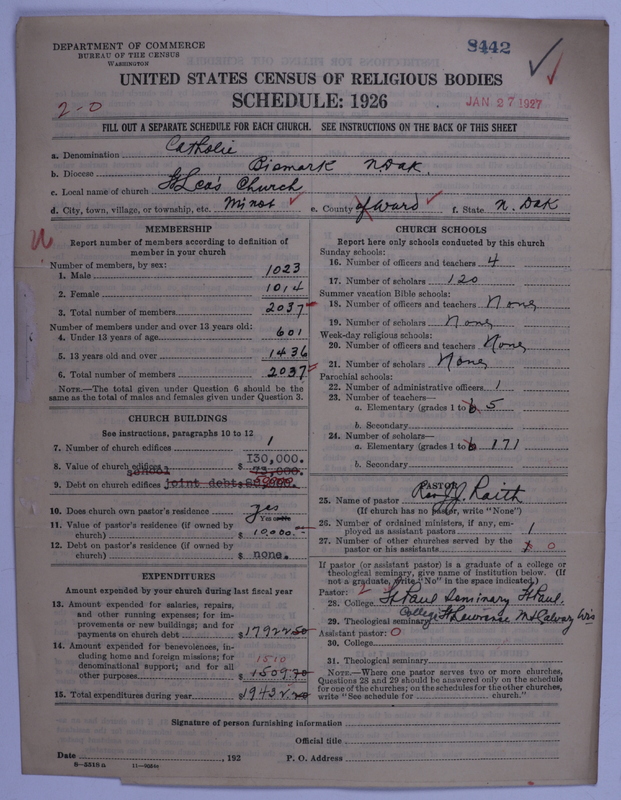 DEPARTMENT OF COMMERCE
BUREAU OF THE CENSUS
WASHINGTON
8442
UNITED STATES CENSUS OF RELIGIOUS BODIES
SCHEDULE: 1926
2-0
JAN 27 1927
FILL OUT A SEPARATE SCHEDULE FOR EACH CHURCH. SEE INSTRUCTIONS ON THE BACK OF THIS SHEET
a. Denomination Catholic
b. Diocese Bismark N. Dak.
c. Local name of church St Leo's Church
d. City, town, village, or township, etc. Minot e. County of Ward f. State N. Dak
MEMBERSHIP
Report number of members according to definition of member in your church
Number of members, by sex:
1. Male 1023
2. Female 1014
3. Total number of members 2037
Number of members under and over 13 years old:
4. Under 13 years of age 601
5. 13 years old and over 1436
6. Total number of members 2037
NOTE.—The total given under Question 6 should be the same as the total of males and females given under Question 3.
CHURCH BUILDINGS
See instructions, paragraphs 10 to 12
7. Number of church edifices 1
130,000.
8. Value of church edifices $ 75,000.
school
9. Debt on church edifices joint debt
10. Does church own pastor's residence? yes
Yes or No
11. Value of pastor's residence (if owned by church) $ 10,000.
12. Debt on pastor's residence (if owned by church) $ none.
EXPENDITURES
Amount expended by your church during last fiscal year
13. Amount expended for salaries, repairs, and other running expenses; for improvements or new buildings; and for payments on church debt $17922.50
14. Amount expended for benevolences, including home and foreign missions; for denominational support; and for all other purposes $ 1509.70
1510
15. Total expenditures during year $19432.20
CHURCH SCHOOLS
Report here only schools conducted by this church
Sunday schools:
16. Number of officers and teachers 4
17. Number of scholars 120
Summer vacation Bible schools:
18. Number of officers and teachers None
19. Number of scholars None
Week-day religious schools:
20. Number of officers and teachers None
21. Number of scholars None
Parochial schools:
22. Number of administrative officers 1
23. Number of teachers—
a. Elementary (grades 1 to 6 5
b. Secondary
24. Number of scholars—
a. Elementary (grades 1 to 6 171
b. Secondary
PASTOR
25. Name of pastor Rev J J Raith
(If church has no pastor, write "None")
26. Number of ordained ministers, if any, employed as assistant pastors 1
27. Number of other churches served by the pastor or his assistants 0
If pastor (or assistant pastor) is a graduate of a college or theological seminary, give name of institution below. (If not a graduate, write "No" in the space indicated.)
Pastor: 2
28. College St Paul Seminary St Paul.
29. Theological seminary College St Lawrance Mt Calvary Wis
Assistant pastor: 0
30. College
31. Theological seminary
NOTE.—Where one pastor serves two or more churches, Questions 28 and 29 should be answered only on the schedule for one of the churches; on the schedules for the other churches, write "See schedule for church."
Signature of person furnishing information
Official title
Date , 192 P. O. Address